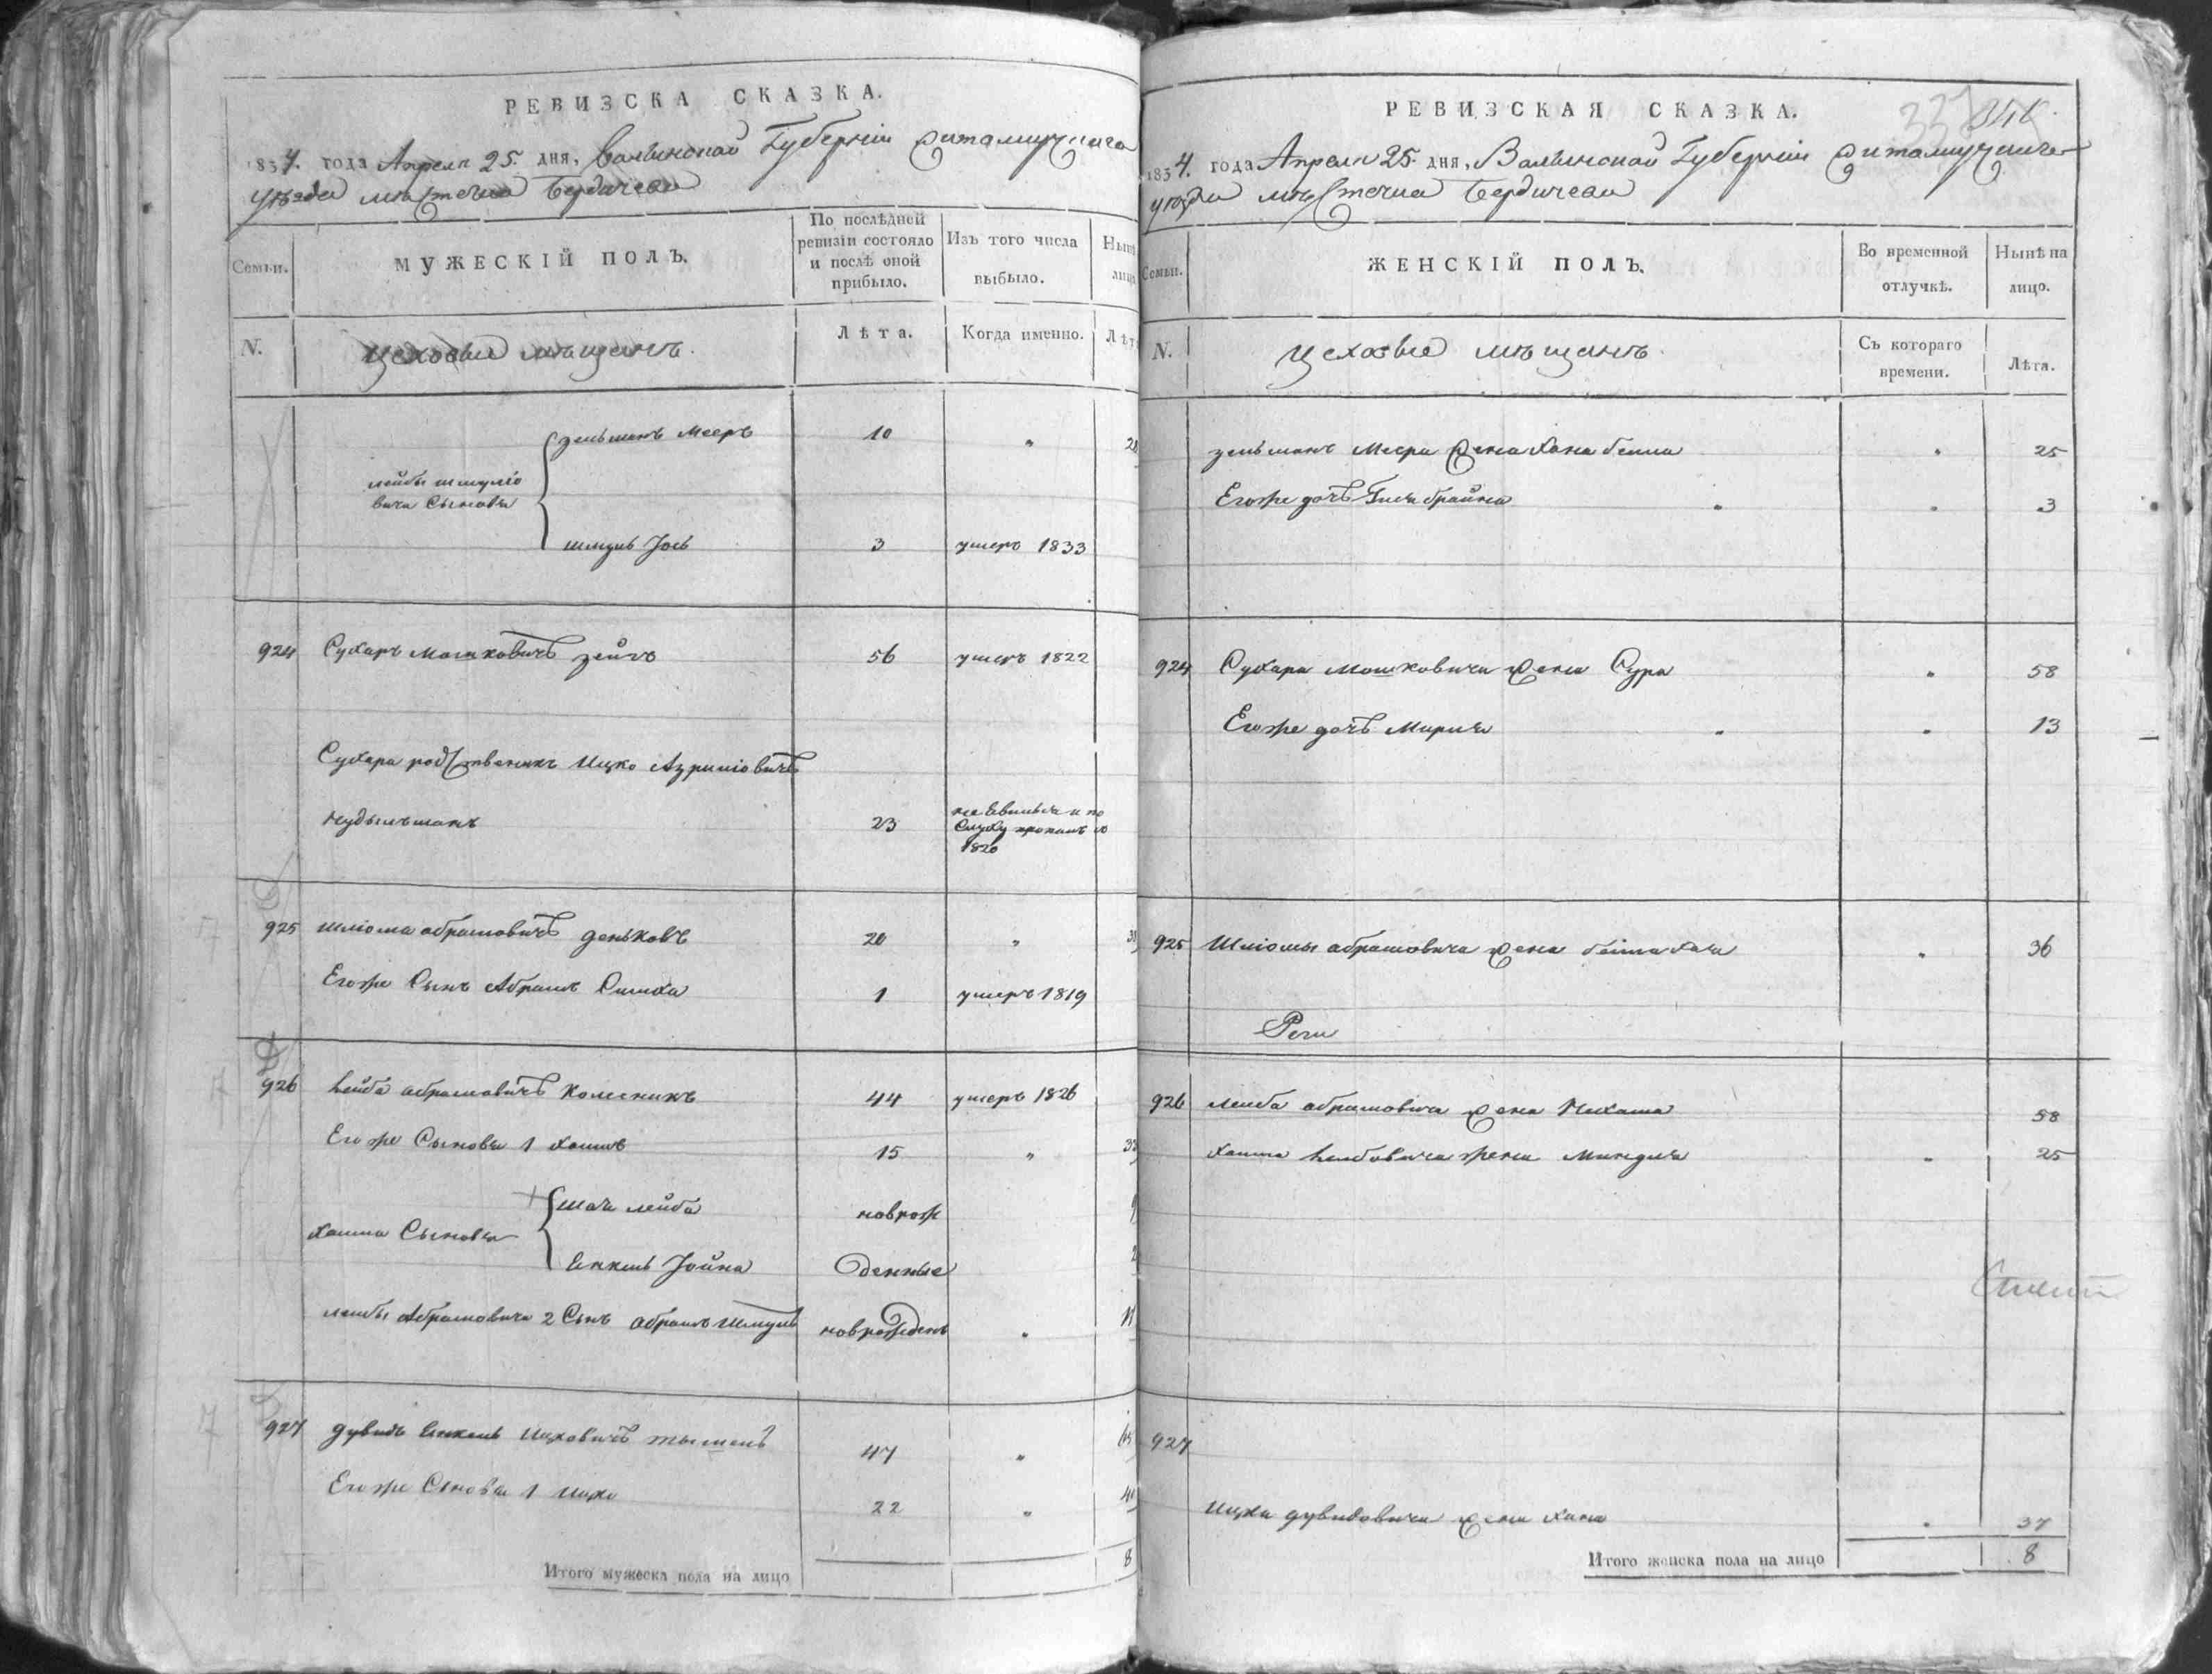 РЕВИЗСКА СКАЗКА.
1834. года Апреля 25. дня, Волынской Губернии Житомирскаго
уѣзда мѣстечка Бердичева
Семьи.
МУЖЕСКІЙ ПОЛЪ.
По послѣдней ревизіи состояло и послѣ оной прибыло.
Изъ того числа выбыло.
Нынѣ
лицо
N.
Цеховые мѣщанъ.
Лѣта.
Когда именно.
Лѣт
Зельманъ Мееръ 10 "
лейбы шмуліо
вича Сыновья
шмуль Јось 3 умеръ 1833
924 Сухаръ Мошковичъ зейгъ 56 умеръ 1822
Сухара родственикъ Ицко Азриліовичъ
нудыльманъ 23
не Явился и по
Слуху пропалъ
1820
925 Шліома абрамовичъ деньковъ 20 "
Егоже Сынъ Абрамъ Симха 1 умеръ 1819
926 Лейба абрамовичъ Колесникъ 44 умеръ 1826
Егоже Сыновья 1 Хаимъ 15 "
шая лейба новрож
Хаима Сыновья
Янкель Јойна денные
лейбы Абрамовича 2 Сынъ абрамъ шмуль новрожденъ "
927 дувидъ Янкель Ицковичъ 47 "
Егоже Сыновья 1 Ицко 22 "
Итого мужеска пола на лицо 8
РЕВИЗСКАЯ СКАЗКА.
1834. года Апреля 25. дня, Волынской Губернии Житомирскаго
уѣзда мѣстечка Бердичева
Семьи.
ЖЕНСКІЙ ПОЛЪ.
Во временной отлучкѣ.
Нынѣ на лицо.
N.
Цеховые мѣщанъ.
Съ котораго времени.
Лѣта.
зельманъ Меера жена Хана бейла " 25
Егоже дочь брайна " 3
924 Сухара Мошковича жена Сура " 58
Егоже дочь Мириня " 13
925 Шліомы абрамовича жена бейла хая " 36
926 лейба абрамовича жена Нехама 58
Хаима Лейбовича жена Миндля " 25
927
Ицка дувидовича жена Хана " 37
Итого женска пола на лицо 8